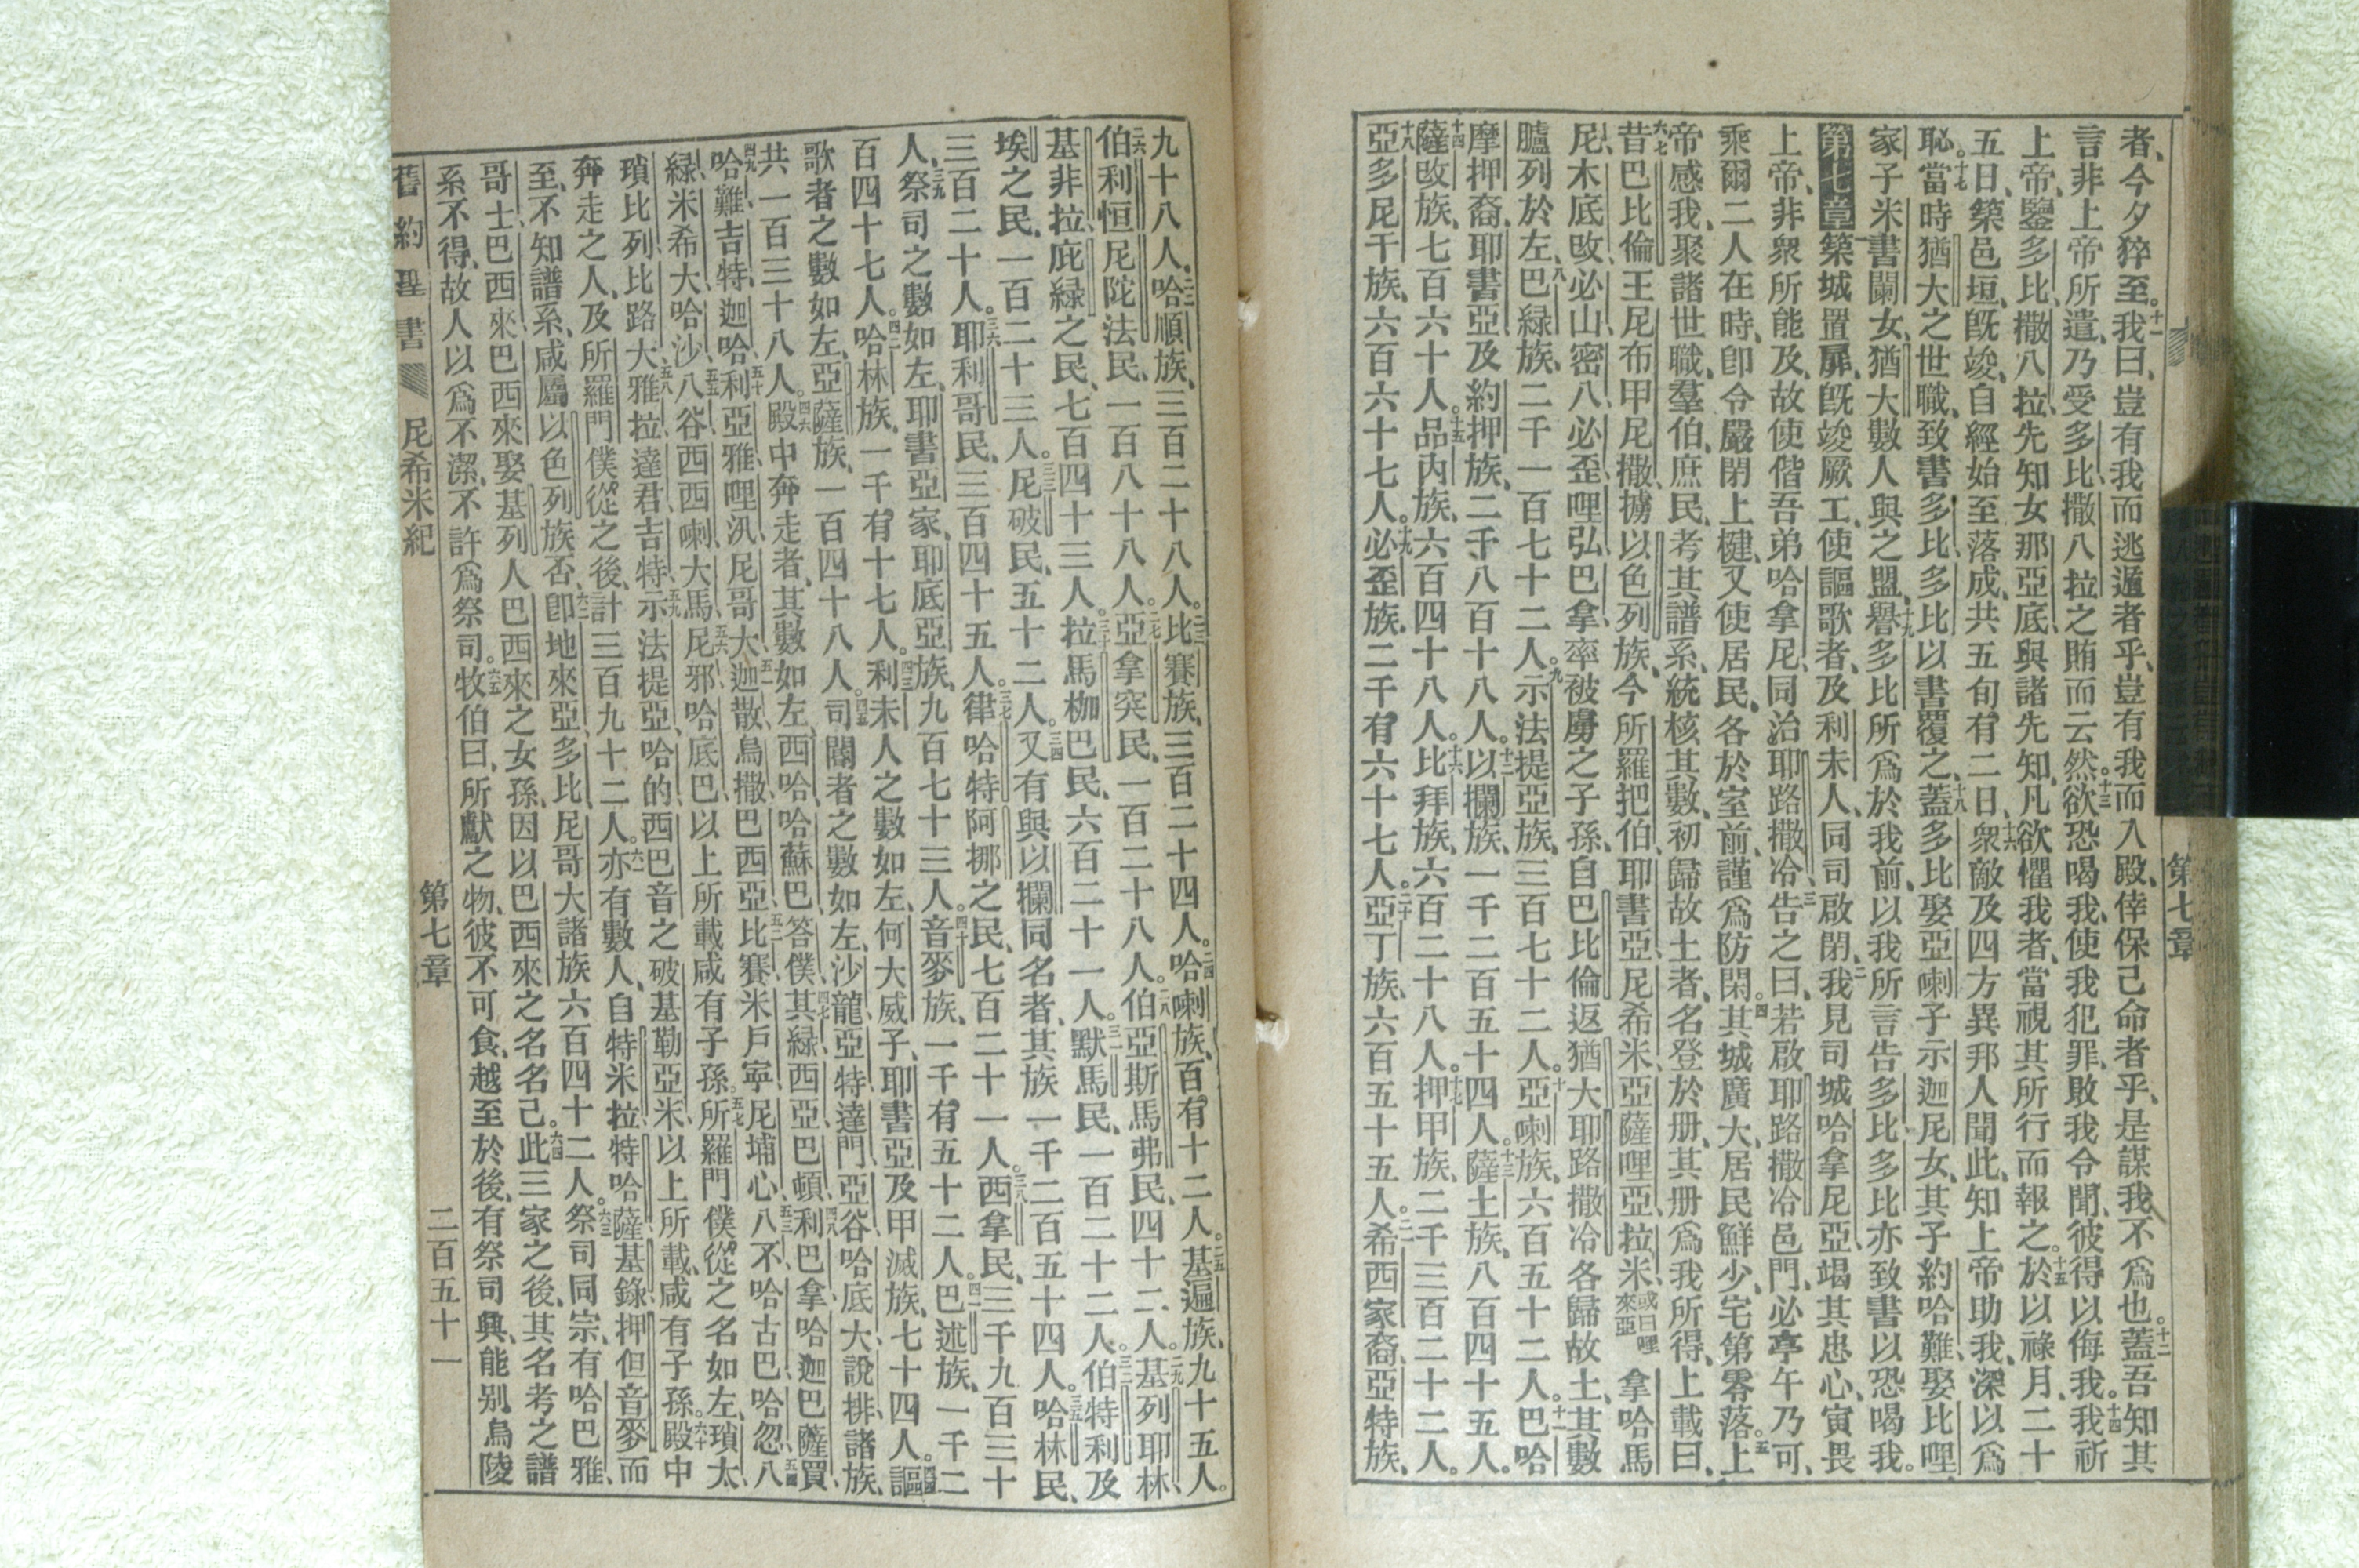 者、今夕猝至。十一我曰、豈有我而逃遁者乎、豈有我而入殿、倖保己命者乎、是謀我不爲也。十二蓋吾知其
言非上帝所遣、乃受多比、撒八拉之賄而云然。十三欲恐喝我、使我犯罪、敗我令聞、彼得以侮我。十四我祈
上帝、鑒多比、撒八拉、先知女那亞底、與諸先知、凡欲懼我者、當視其所行而報之。十五於以祿月、二十
五日、築邑垣、旣竣、自經始至落成、共五旬有二日、十六衆敵及四方異邦人聞此、知上帝助我、深以爲
恥。十七當時猶大之世職、致書多比、多比以書覆之、十八蓋多比娶亞喇子示迦尼女、其子約哈難、娶比哩
家子米書闌女、猶大數人與之盟、十九譽多比所爲於我前、以我所言告多比、多比亦致書以恐喝我。
第七章築城置扉、旣竣厥工、使謳歌者、及利未人、同司啟閉、二我見司城哈拿尼亞、竭其忠心、寅畏
上帝、非衆所能及、故使偕吾弟哈拿尼、同治耶路撒冷、三告之曰、若啟耶路撒冷邑門、必亭午乃可、
乘爾二人在時、卽令嚴閉上楗、又使居民、各於室前、謹爲防閑。四其城廣大、居民鮮少、宅第零落。五上
帝感我、聚諸世職、羣伯、庶民、考其譜系、統核其數、初歸故土者、名登於册、其册爲我所得、上載曰、
六七昔巴比倫王尼布甲尼撒、擄以色列族、今所羅把伯、耶書亞、尼希米、亞薩哩亞、拉米或曰哩來亞拿哈馬
尼、木底改、必山、密八、必歪哩弘、巴拿、率被虜之子孫、自巴比倫返猶大耶路撒冷、各歸故土、其數
臚列於左、八巴綠族、二千一百七十二人。九示法提亞族、三百七十二人。十亞喇族、六百五十二人。十一巴哈
摩押裔、耶書亞及約押族、二千八百十八人。十二以攔族、一千二百五十四人。十三薩土族、八百四十五人。
十四薩改族、七百六十人。十五品內族、六百四十八人。十六比拜族、六百二十八人。十七押甲族、二千三百二十二人。
十八亞多尼干族、六百六十七人。十九必歪族、二千有六十七人。二十亞丁族、六百五十五人。二一希西家裔、亞特族、
第七章
九十八人。二二哈順族、三百二十八人。二三比賽族、三百二十四人。二四哈喇族、百有十二人。二五基遍族、九十五人。
二六伯利恒、尼陀法民、一百八十八人。二七亞拿突民、一百二十八人。二八伯亞斯馬弗民、四十二人。二九基列耶林、
基非拉、庇綠之民、七百四十三人。三十拉馬、枷巴民、六百二十一人。三一默馬民、一百二十二人。三二伯特利及
埃之民、一百二十三人。三三尼破民、五十二人。三四又有與以攔同名者、其族一千二百五十四人。三五哈林民、
三百二十人。三六耶利哥民、三百四十五人。三七律、哈特、阿挪之民、七百二十一人。三八西拿民、三千九百三十
人、三九祭司之數如左、耶書亞家、耶底亞族、九百七十三人。四十音麥族、一千有五十二人。四一巴述族、一千二
百四十七人。四二哈林族、一千有十七人。四三利未人之數如左、何大威子、耶書亞及甲滅族、七十四人。四四謳
歌者之數如左、亞薩族、一百四十八人。四五司閽者之數如左、沙龍、亞特、達門、亞谷、哈底大、說排諸族、
共一百三十八人。四六殿中奔走者、其數如左、西哈、哈蘇巴、答僕、四七其綠、西亞、巴頓、四八利巴拿、哈迦巴、薩買、
四九哈難、吉特、迦哈、五十利亞雅、哩汛、尼哥大、五一迦散、烏撒、巴西亞、五二比賽、米戶寧、尼埔心、五三八不、哈古巴、哈忽、五四八
綠、米希大、哈沙、五五八谷、西西喇、大馬、五六尼邪、哈底巴、以上所載、咸有子孫。五七所羅門僕從之名如左、瑣太、
瑣比列、比路大、五八雅拉、達君、吉特、五九示法提亞、哈的、西巴音之破基勒、亞米、以上所載、咸有子孫。六十殿中
奔走之人、及所羅門僕從之後、計三百九十二人。六一亦有數人、自特米拉、特哈薩、基錄、押但、音麥而
至、不知譜系、咸屬以色列族否、六二卽地來亞、多比、尼哥大諸族、六百四十二人。六三祭司同宗、有哈巴雅、
哥士、巴西來、巴西來娶基列人巴西來之女孫、因以巴西來之名名己。六四此三家之後、其名考之譜
系不得、故人以爲不潔、不許爲祭司。六五牧伯曰、所獻之物、彼不可食、越至於後、有祭司興、能別烏陵
舊約聖書 尼希米紀 第七章 二百五十一